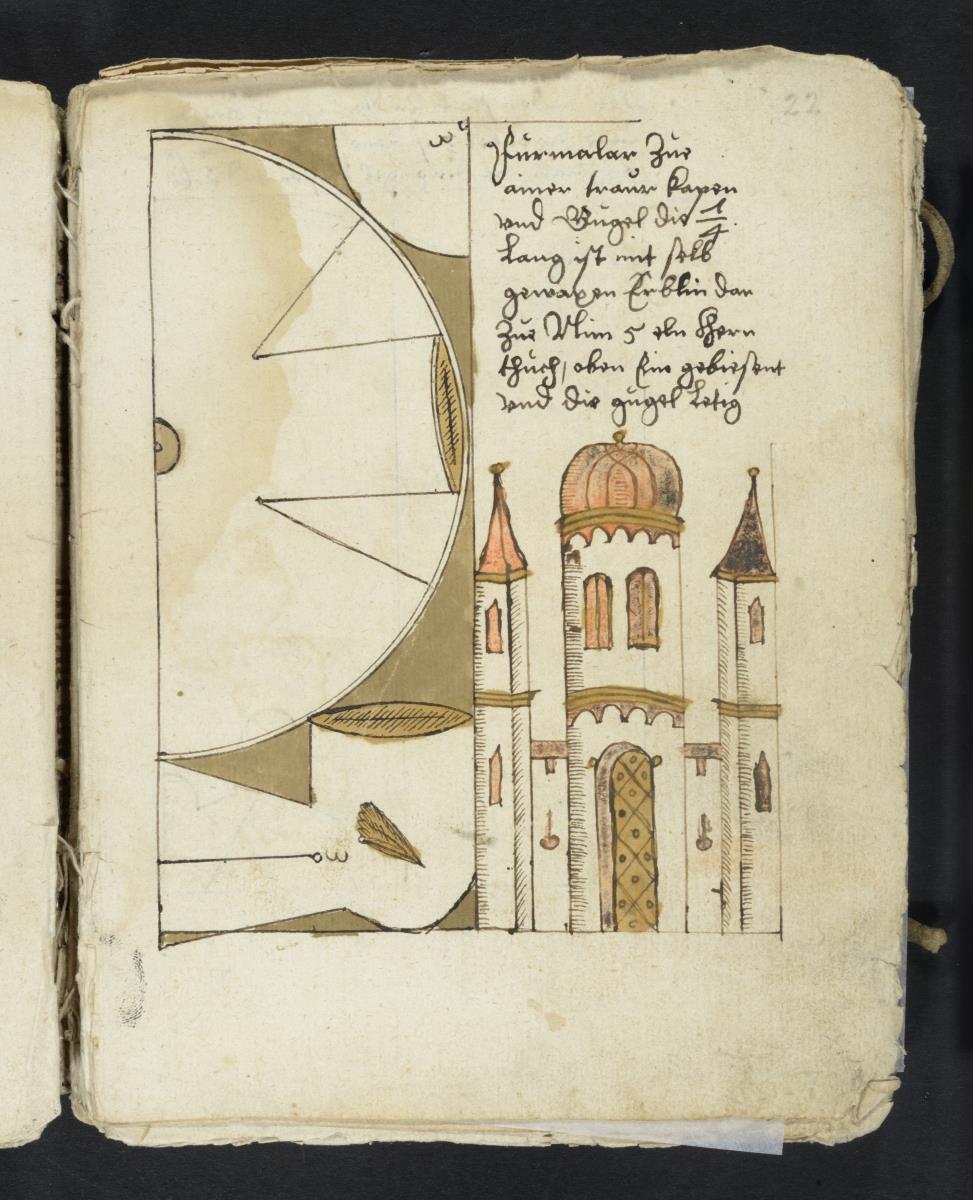 22
Furmular Zue
ainer traur kapen
vnd Gugel die 1/4
Lang ist mit selb
gewaxen Erblin dar
Zue Nim 5 eln Hern
thuch, oben Ein gebiesent
vnd die gugel Letig